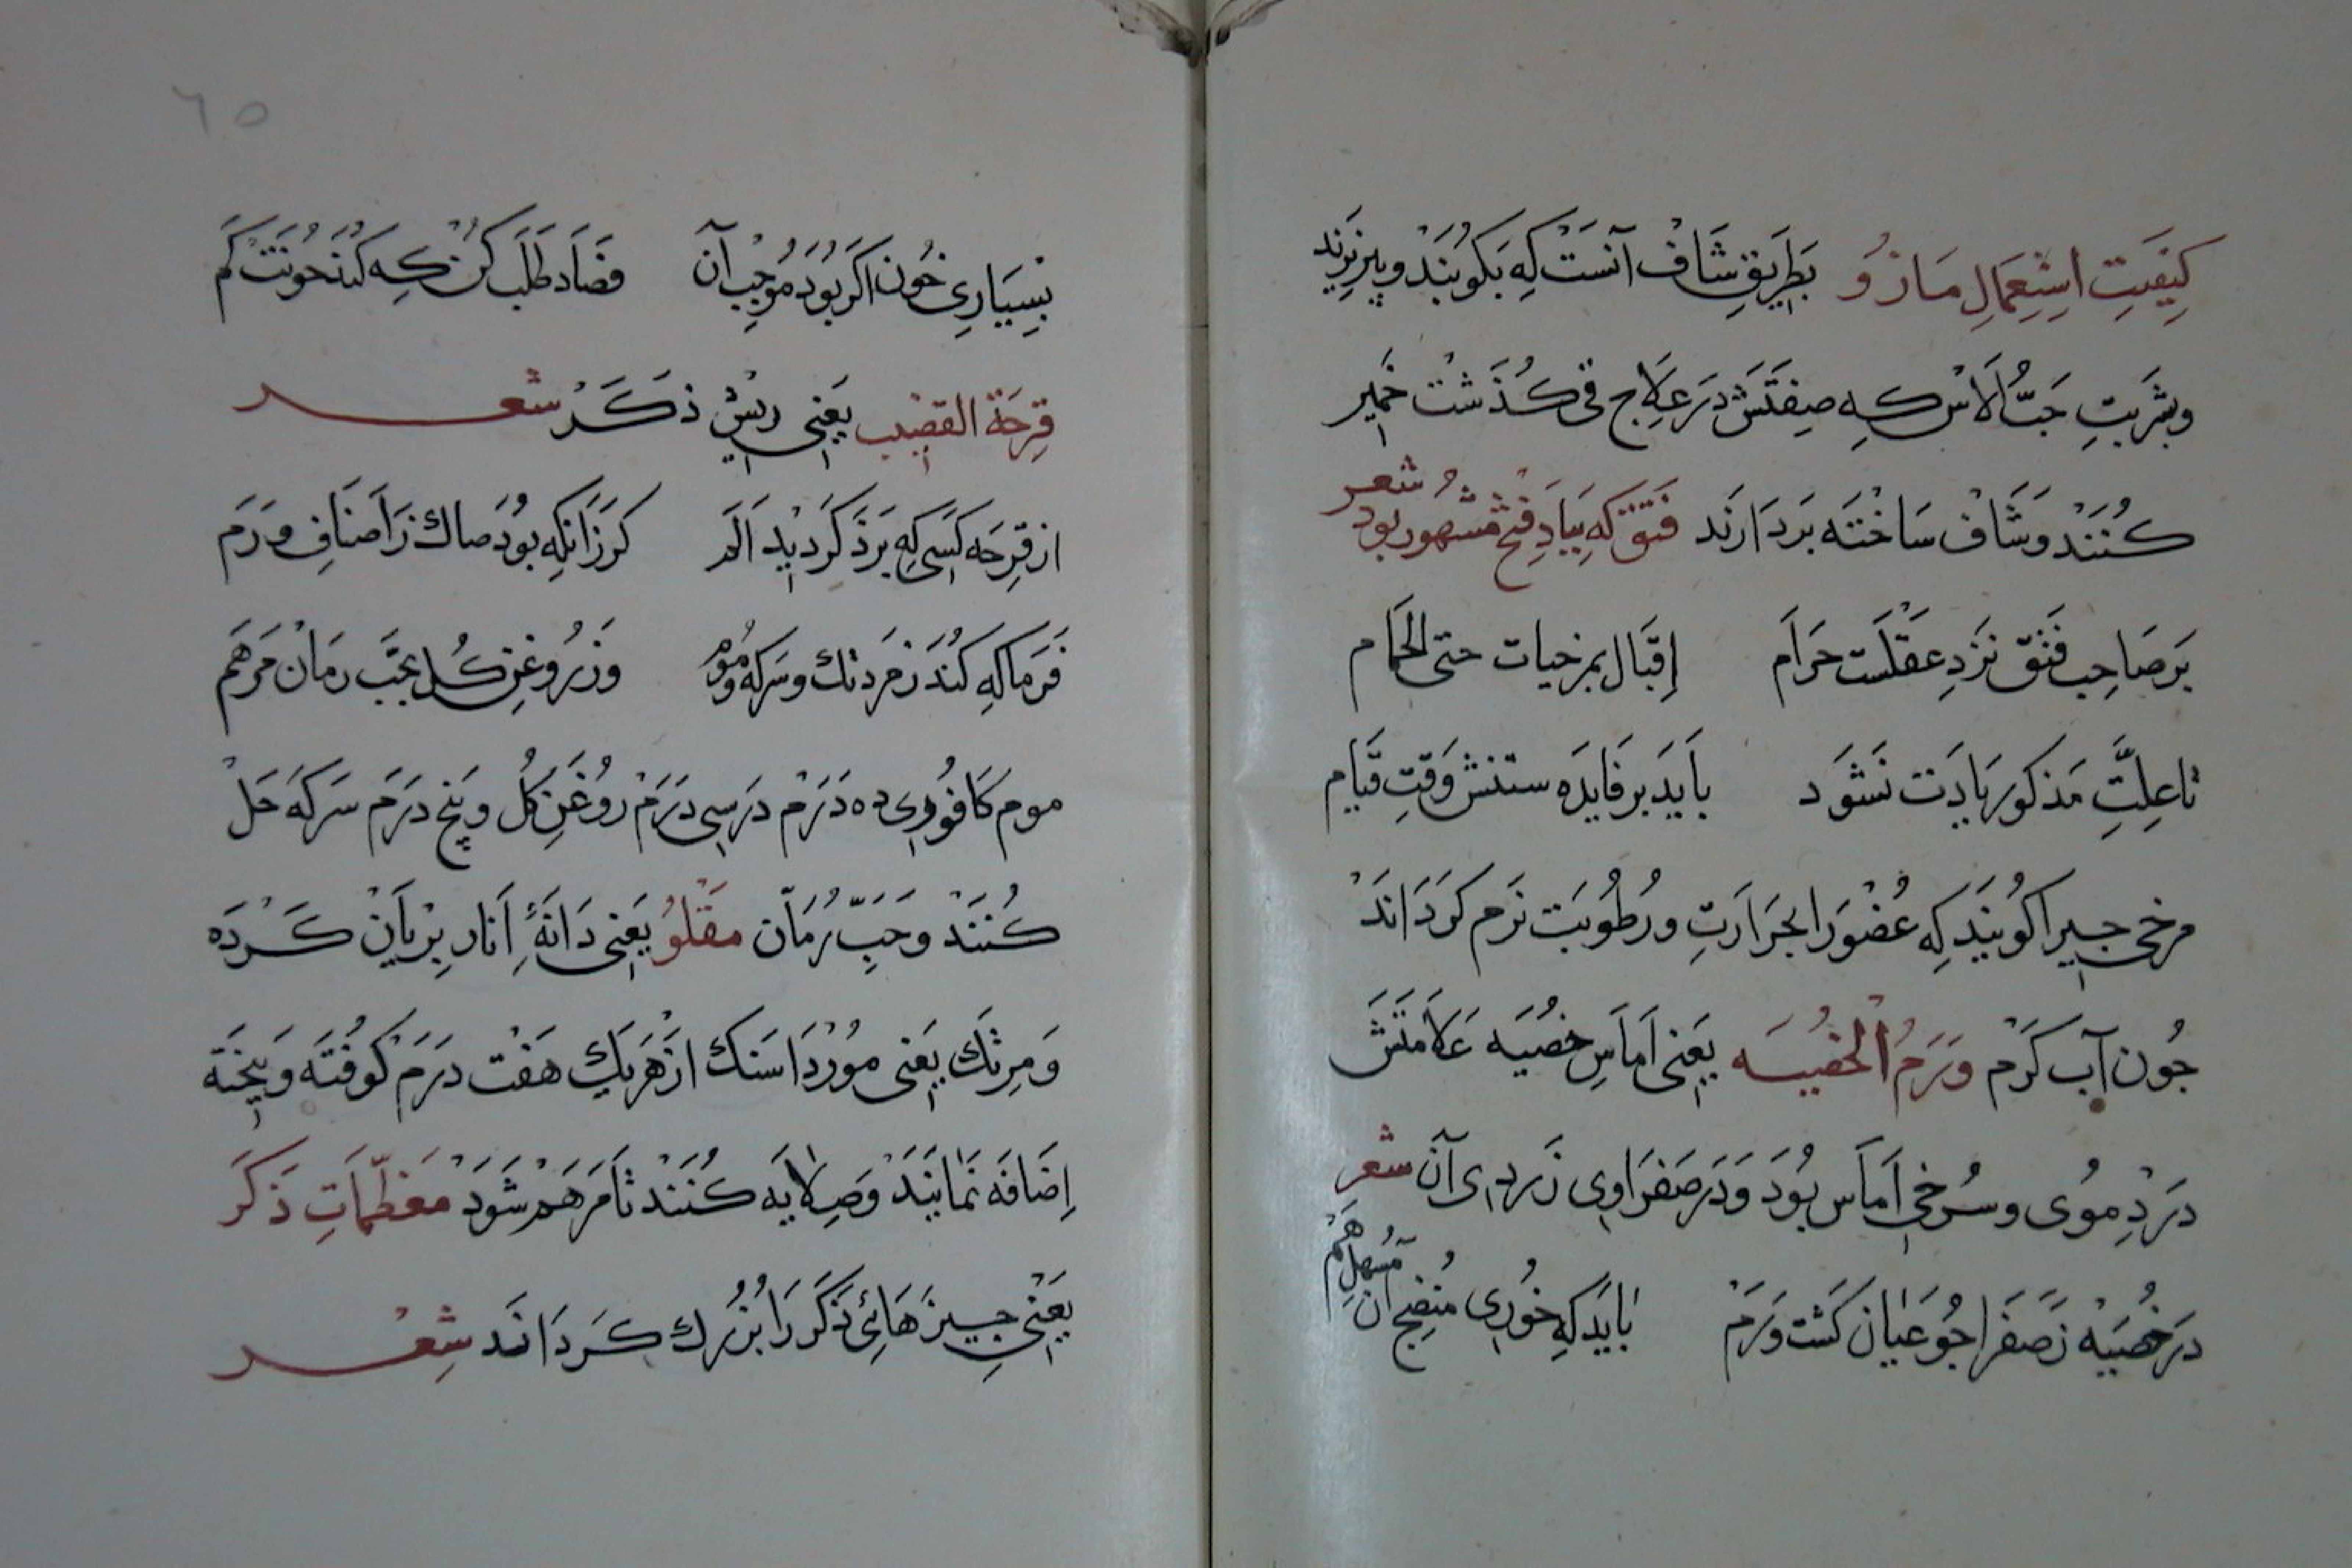 كیفیت استعمال مازو بطریق شاف آنست که بکوبند و بپزیزند
وبشربت حب الاس که صفتش در علاج قی کذشت خمیر
کنند و شاف ساخته بردارند فتق که بباد فتح مشهور بود شعر
بر صاحب فتق نزد عقلست حرام اقبال بمرخیات حتی الحمام
تا علت مذکور زیادت نشود باید بر فایده ستنش وقت قیام
مرخی چیرا کویند که عضو را بحرارت و رطوبت نرم کرداند
جون آب کرم ورم الخصیه یعنی اماس خصیه علامتش
در دموی و سرخی اماس بود و در صفراوی زردی آن شعر
در خصیه ز صفرا جو عیان کشت ورم باید که خوری منضج آن مسهل هم
٦٥
بسیاری خون اکر بود موجب آن فصاد طلب کن که کند خونت کم
قرحة القضیب یعنی ریش ذکر شعر
از قرحه کسی که بر ذکر دید الم کر زانکه بود صاك ز اصناف ورم
فرما که کند ز مردنك و سرکه و موم وز روغن کل بحب رمان مرهم
موم کافوری ده درم در سی درم روغن کل و پنج درم سرکه حل
کنند و حب رمان مقلو یعنی دانۀ انار بریان کرده
و مرتك یعنی مورداسنك از هر یك هفت درم کوفته و بیخته
اضافه نمایند و صلایه کنند تا مرهم شود معظمات ذکر
یعنی جیزهائی ذکر را بزرك کرداند شعر